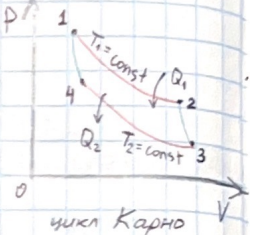 P
1
T₁=const
Q₁
2
4
Q₂
T₂=const
3
0
V
цикл Карно